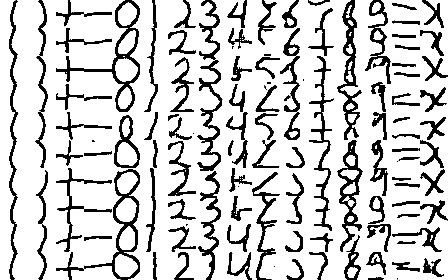 ( ) + - 0 1 2 3 4 5 6 7 8 9 = x
( ) + - 0 1 2 3 4 5 6 7 8 9 = x
( ) + - 0 1 2 3 4 5 7 8 9 = x
( ) + - 0 1 2 3 4 5 3 7 8 9 = x
( ) + - 0 1 2 3 4 5 6 7 8 9 = x
( ) + - 0 1 2 3 4 5 7 8 9 = x
( ) + - 0 1 2 3 4 7 8 9 = x
( ) + - 0 1 2 3 4 3 7 8 9 = x
( ) + - 0 1 2 3 4 7 8 9 = x
( ) + - 0 1 2 3 4 7 8 9 = x